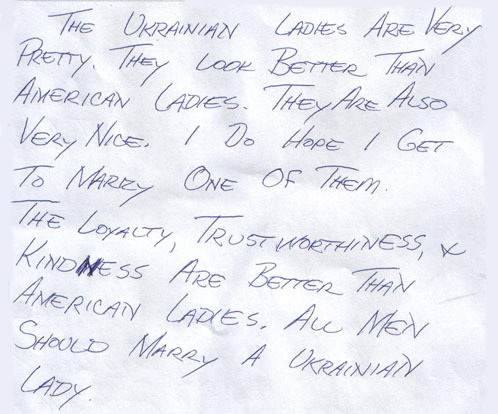 The Ukrainian Ladies Are Very
Pretty. They Look Better Than
American Ladies. They Are Also
Very Nice. I Do Hope I Get
To Marry One Of Them.
The Loyalty, Trustworthiness, &
Kindness Are Better Than
American Ladies. All Men
Should Marry A Ukrainian
Lady.